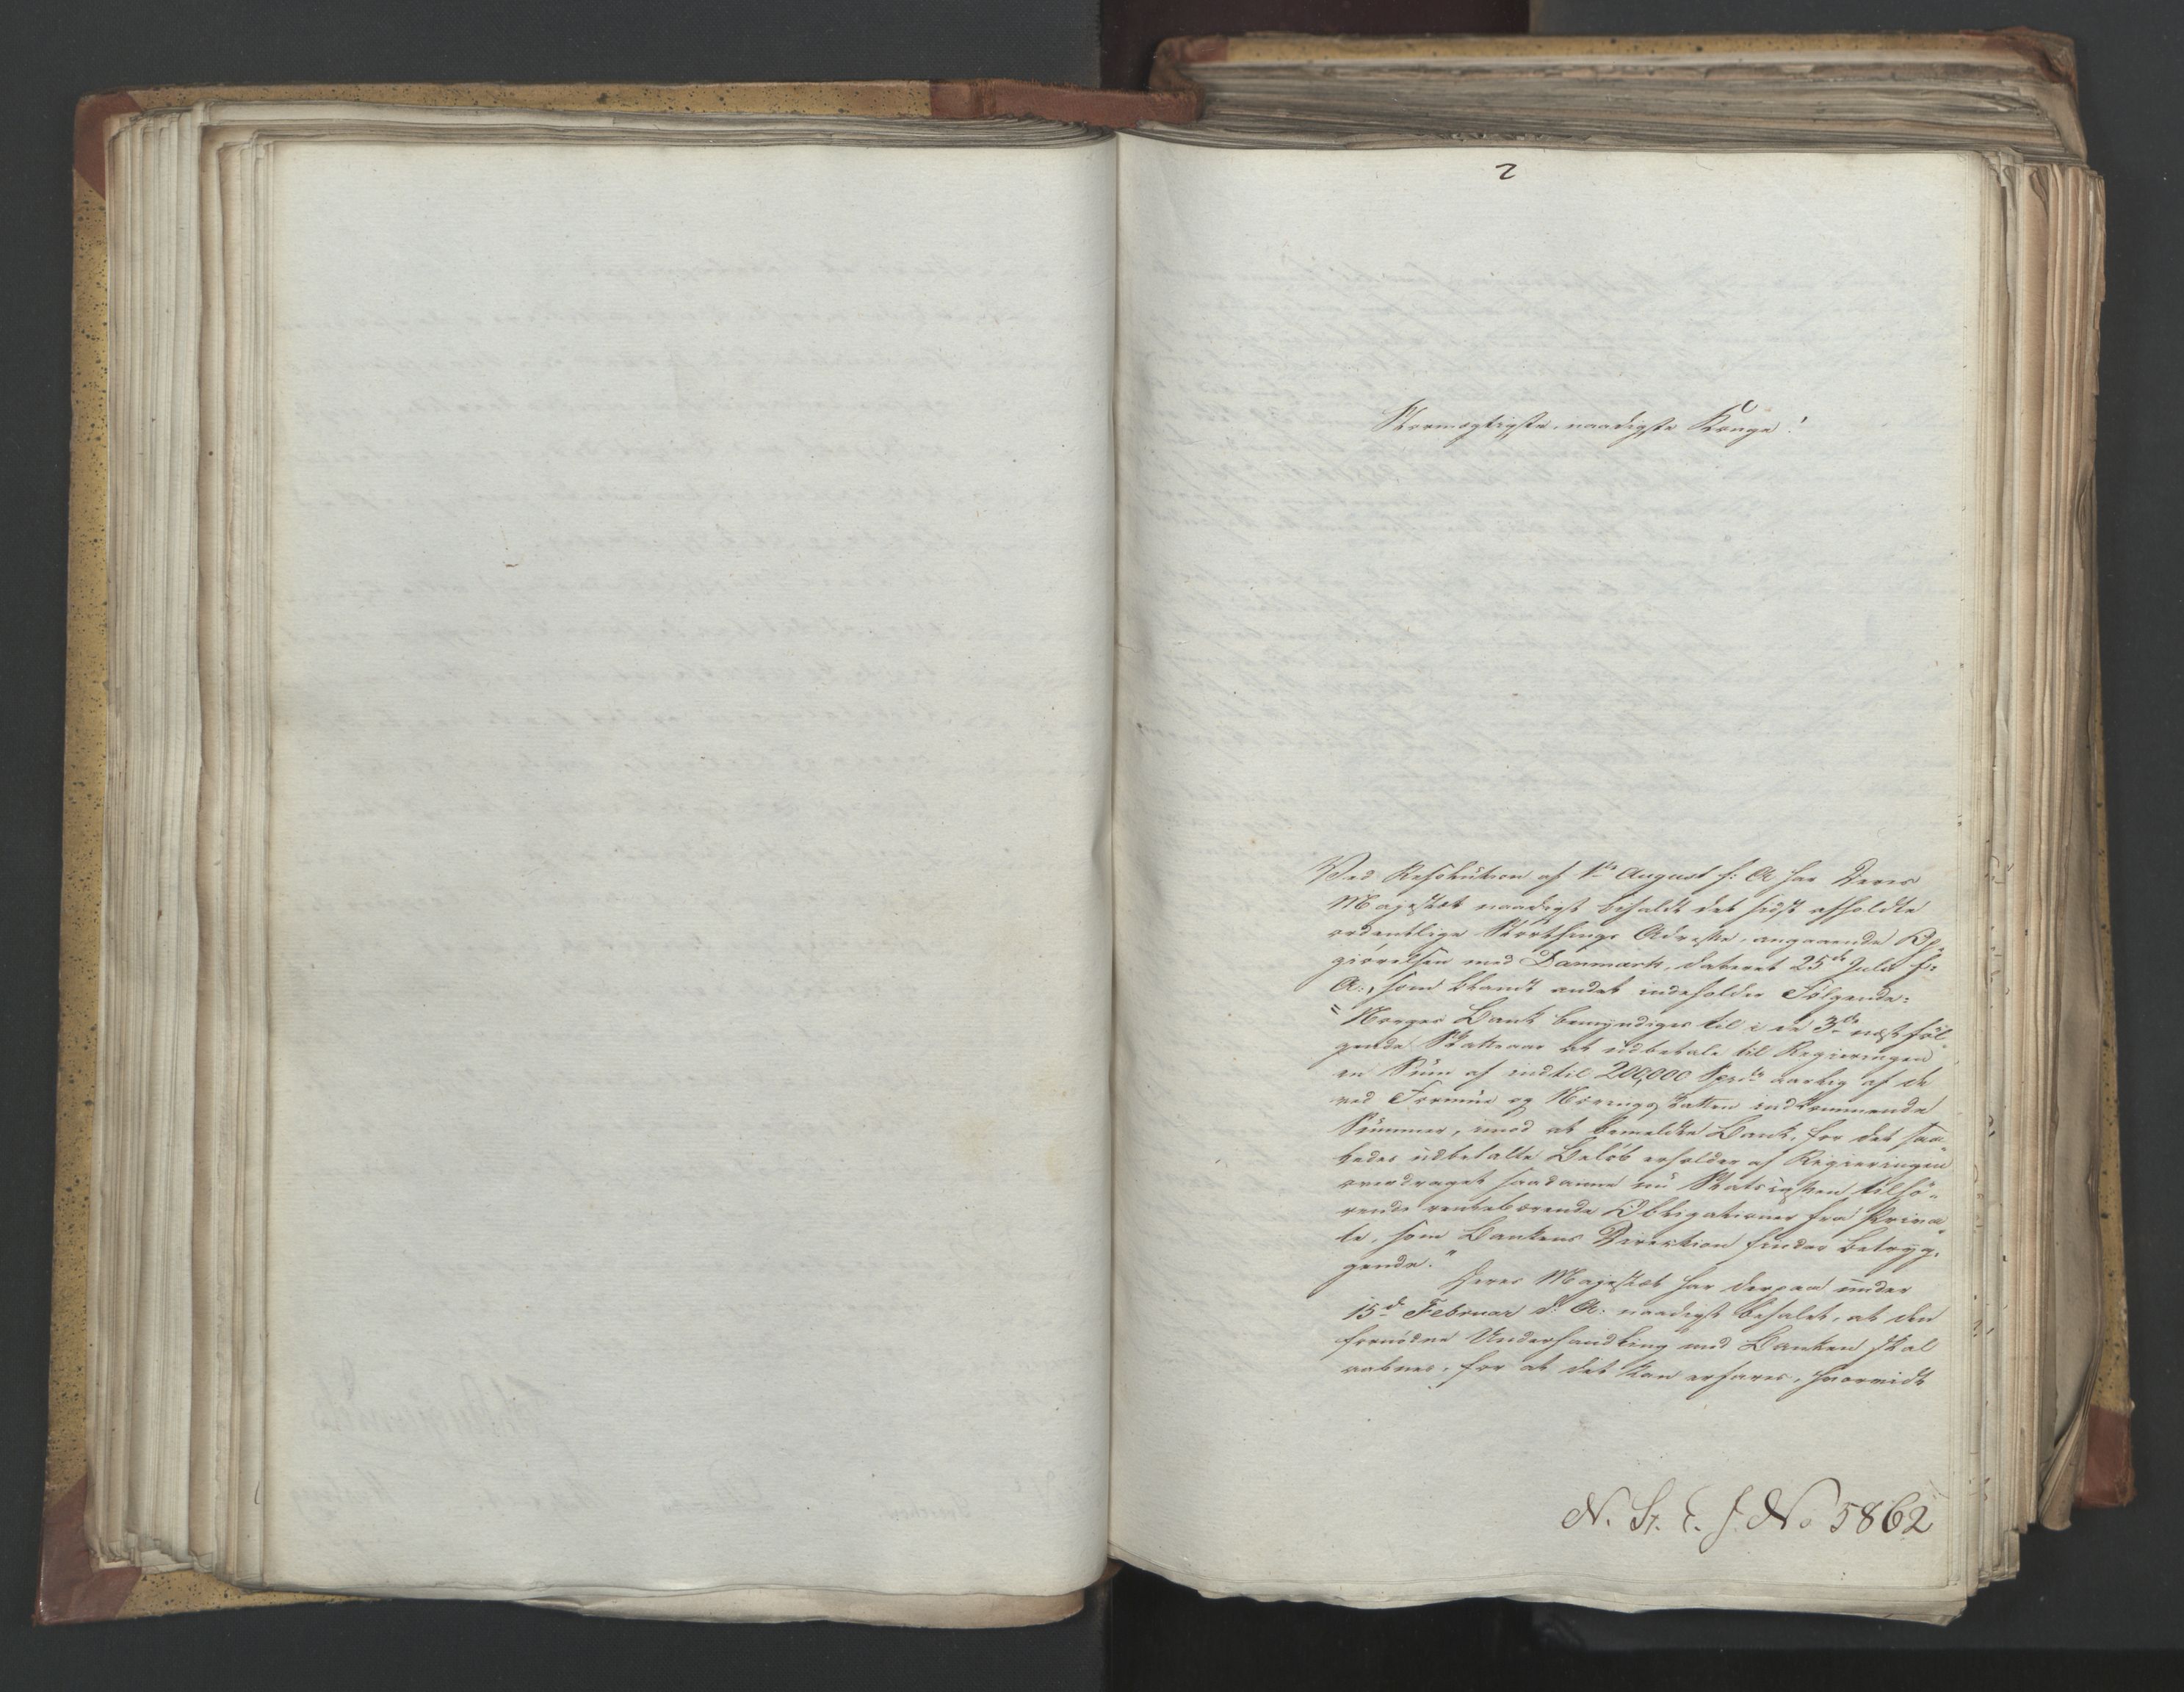 2
Stormægtigste, naadigste Konge!
Ved Resolution af 1ste August f: A har Deres
Majestæt naadigst bifaldt det sidst afholdte
ordentlige Storthings Adresse, angaaende Op¬
giörelsen med Danmark, dateret 25de Juli f:
A:, som blandt andet indeholder Fölgende:
"Norges Bank bemyndiges til i de 3de næst föl¬
gende Skatteaar at udbetale til Regjeringen
en Sum af indtil 200,000 Spd aarlig af de
ved Formue og Næringsskatten indkommende
Summer, imod at bemeldte Bank, for det saa¬
ledes udbetalte Belöb erholder af Regjeringen
overdraget saadanne nu Statskassen tilhö¬
rende rentebærende Obligationer fra Priva¬
te, som Bankens Direktion finder betryg¬
gende."
Deres Majestæt har derpaa under
15d Februar d: A: naadigst befalet, at den
fornödne Underhandling med Banken skal
aabnes, for at det kan erfares, hvorvidt
N. St. E. J. No 5862